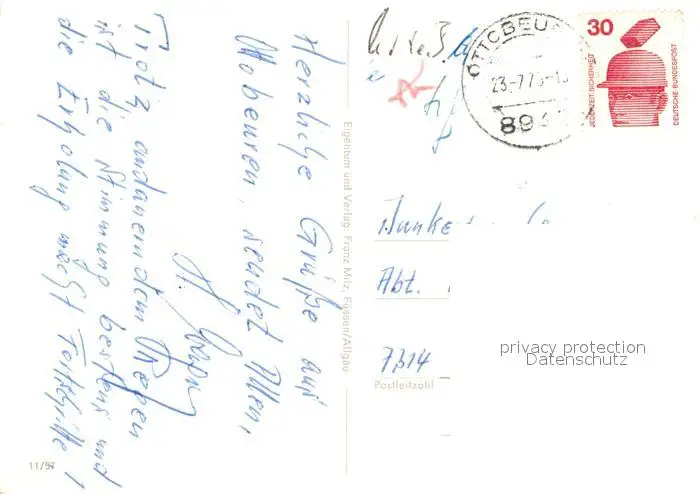 Herzliche Grüße aus
Ottobeuren, sendet Allen,
Trotz andauerndem Regen
ist die Stimmung bestens und
die Erholung macht Fortschritte!
11/57
Eigentum und Verlag: Franz Milz, Füssen/Allgäu
OTTOBEU
23.-7.7
894
30
JEDERZEIT SICHERHEIT
DEUTSCHE BUNDESPOST
Abt.
7314
Postleitzahl
privacy protection
Datenschutz